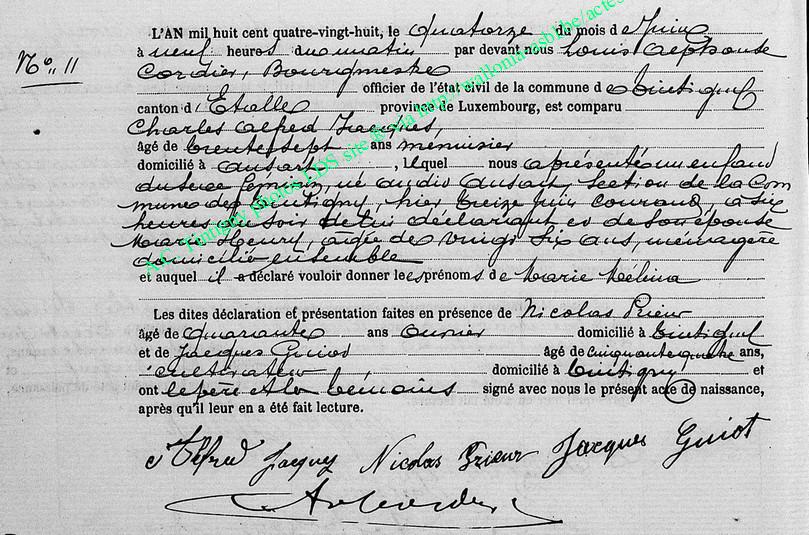 L'AN mil huit cent quatre-vingt-huit, le quatorze du mois de Juin
à neuf heures du matin par devant nous Louis Alphonse
N° 11
Cordier, Bourgmestre
officier de l'état civil de la commune de Tintigny
canton d'Etalle province de Luxembourg, est comparu
Charles Alfred Jacques,
âgé de trente sept ans menuisier
domicilié à Ansart, lequel nous a présenté un enfant
du sexe féminin, né au dit Ansart, section de la Com
mune de Tintigny, hier treize juin courant, à six
heures du soir de lui déclarant et de son épouse
Marie Henry, âgée de vingt six ans, ménagère
domicilié ensemble
et auquel il a déclaré vouloir donner les prénoms de Marie Mélina
Les dites déclaration et présentation faites en présence de Nicolas Prieur
âgé de quarante ans ouvrier domicilié à Tintigny
et de Jacques Guiot âgé de cinquante quatre ans,
cultivateur, domicilié à Tintigny et
ont le père et les témoins signé avec nous le présent acte de naissance,
après qu'il leur en a été fait lecture.
Alfred Jacques Nicolas Prieur Jacques Guiot
A.C. Tintigny photos LDS site via http://wallonia-asbl.be/actes